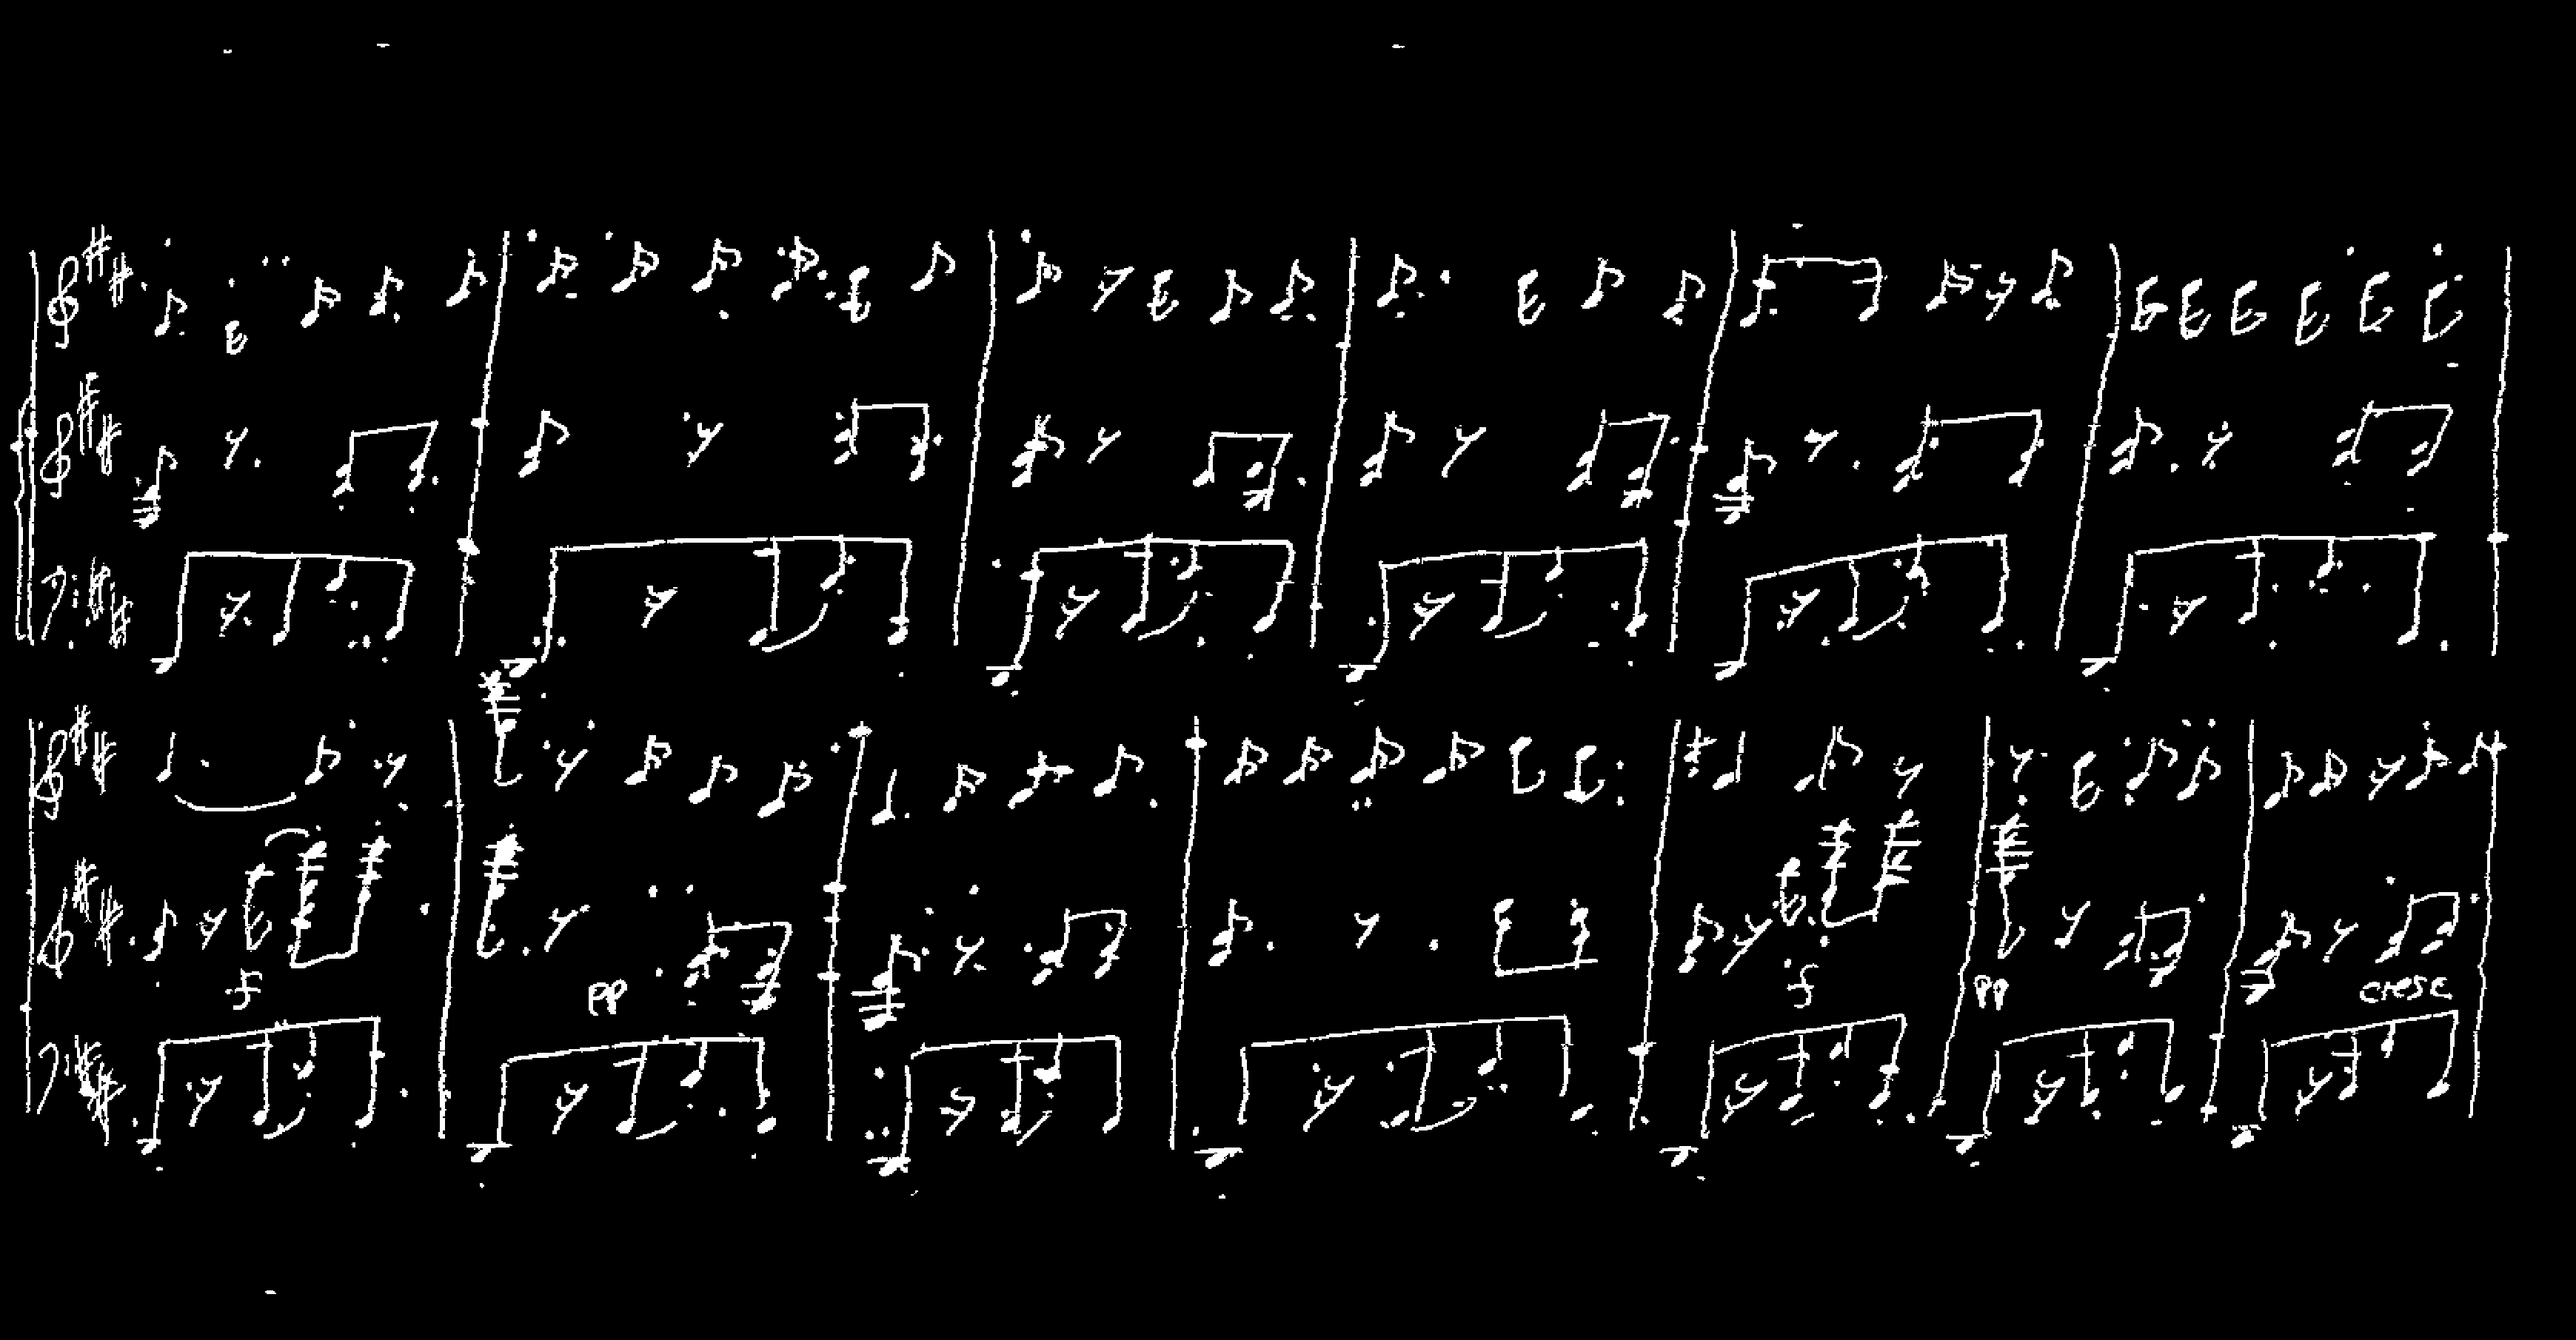 f
f
pp
pp
cresc